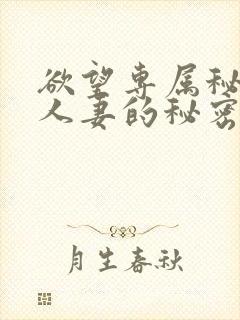 欲望专属秘
人妻的秘密
月生春秋